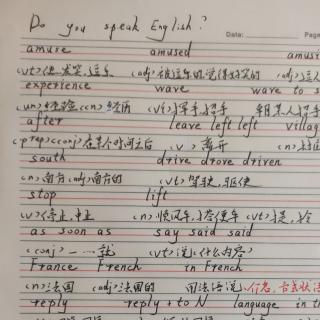 Do you speak English?
Data:
amuse amused
(vt)使发笑,逗乐 (adj)被逗乐的,觉得好笑的 (adj)
experience wave wave to s
(un)经验 (cn)经历 (vi)挥手,招手 朝某人招手
after leave left left villag
(prep)(conj)在某个时间之后 (v)离开 (n)
south drive drove driven
(n)南方 (adj)南方的 (vt)驾驶,驱使
stop lift
(v)停止,中止 (n)顺风车,搭便车 (vt)提,
as soon as say said said
(conj)一……就 (vt)说
France French in French
(n)法国 (adj)法国的 用法语说
reply reply + to N language in th